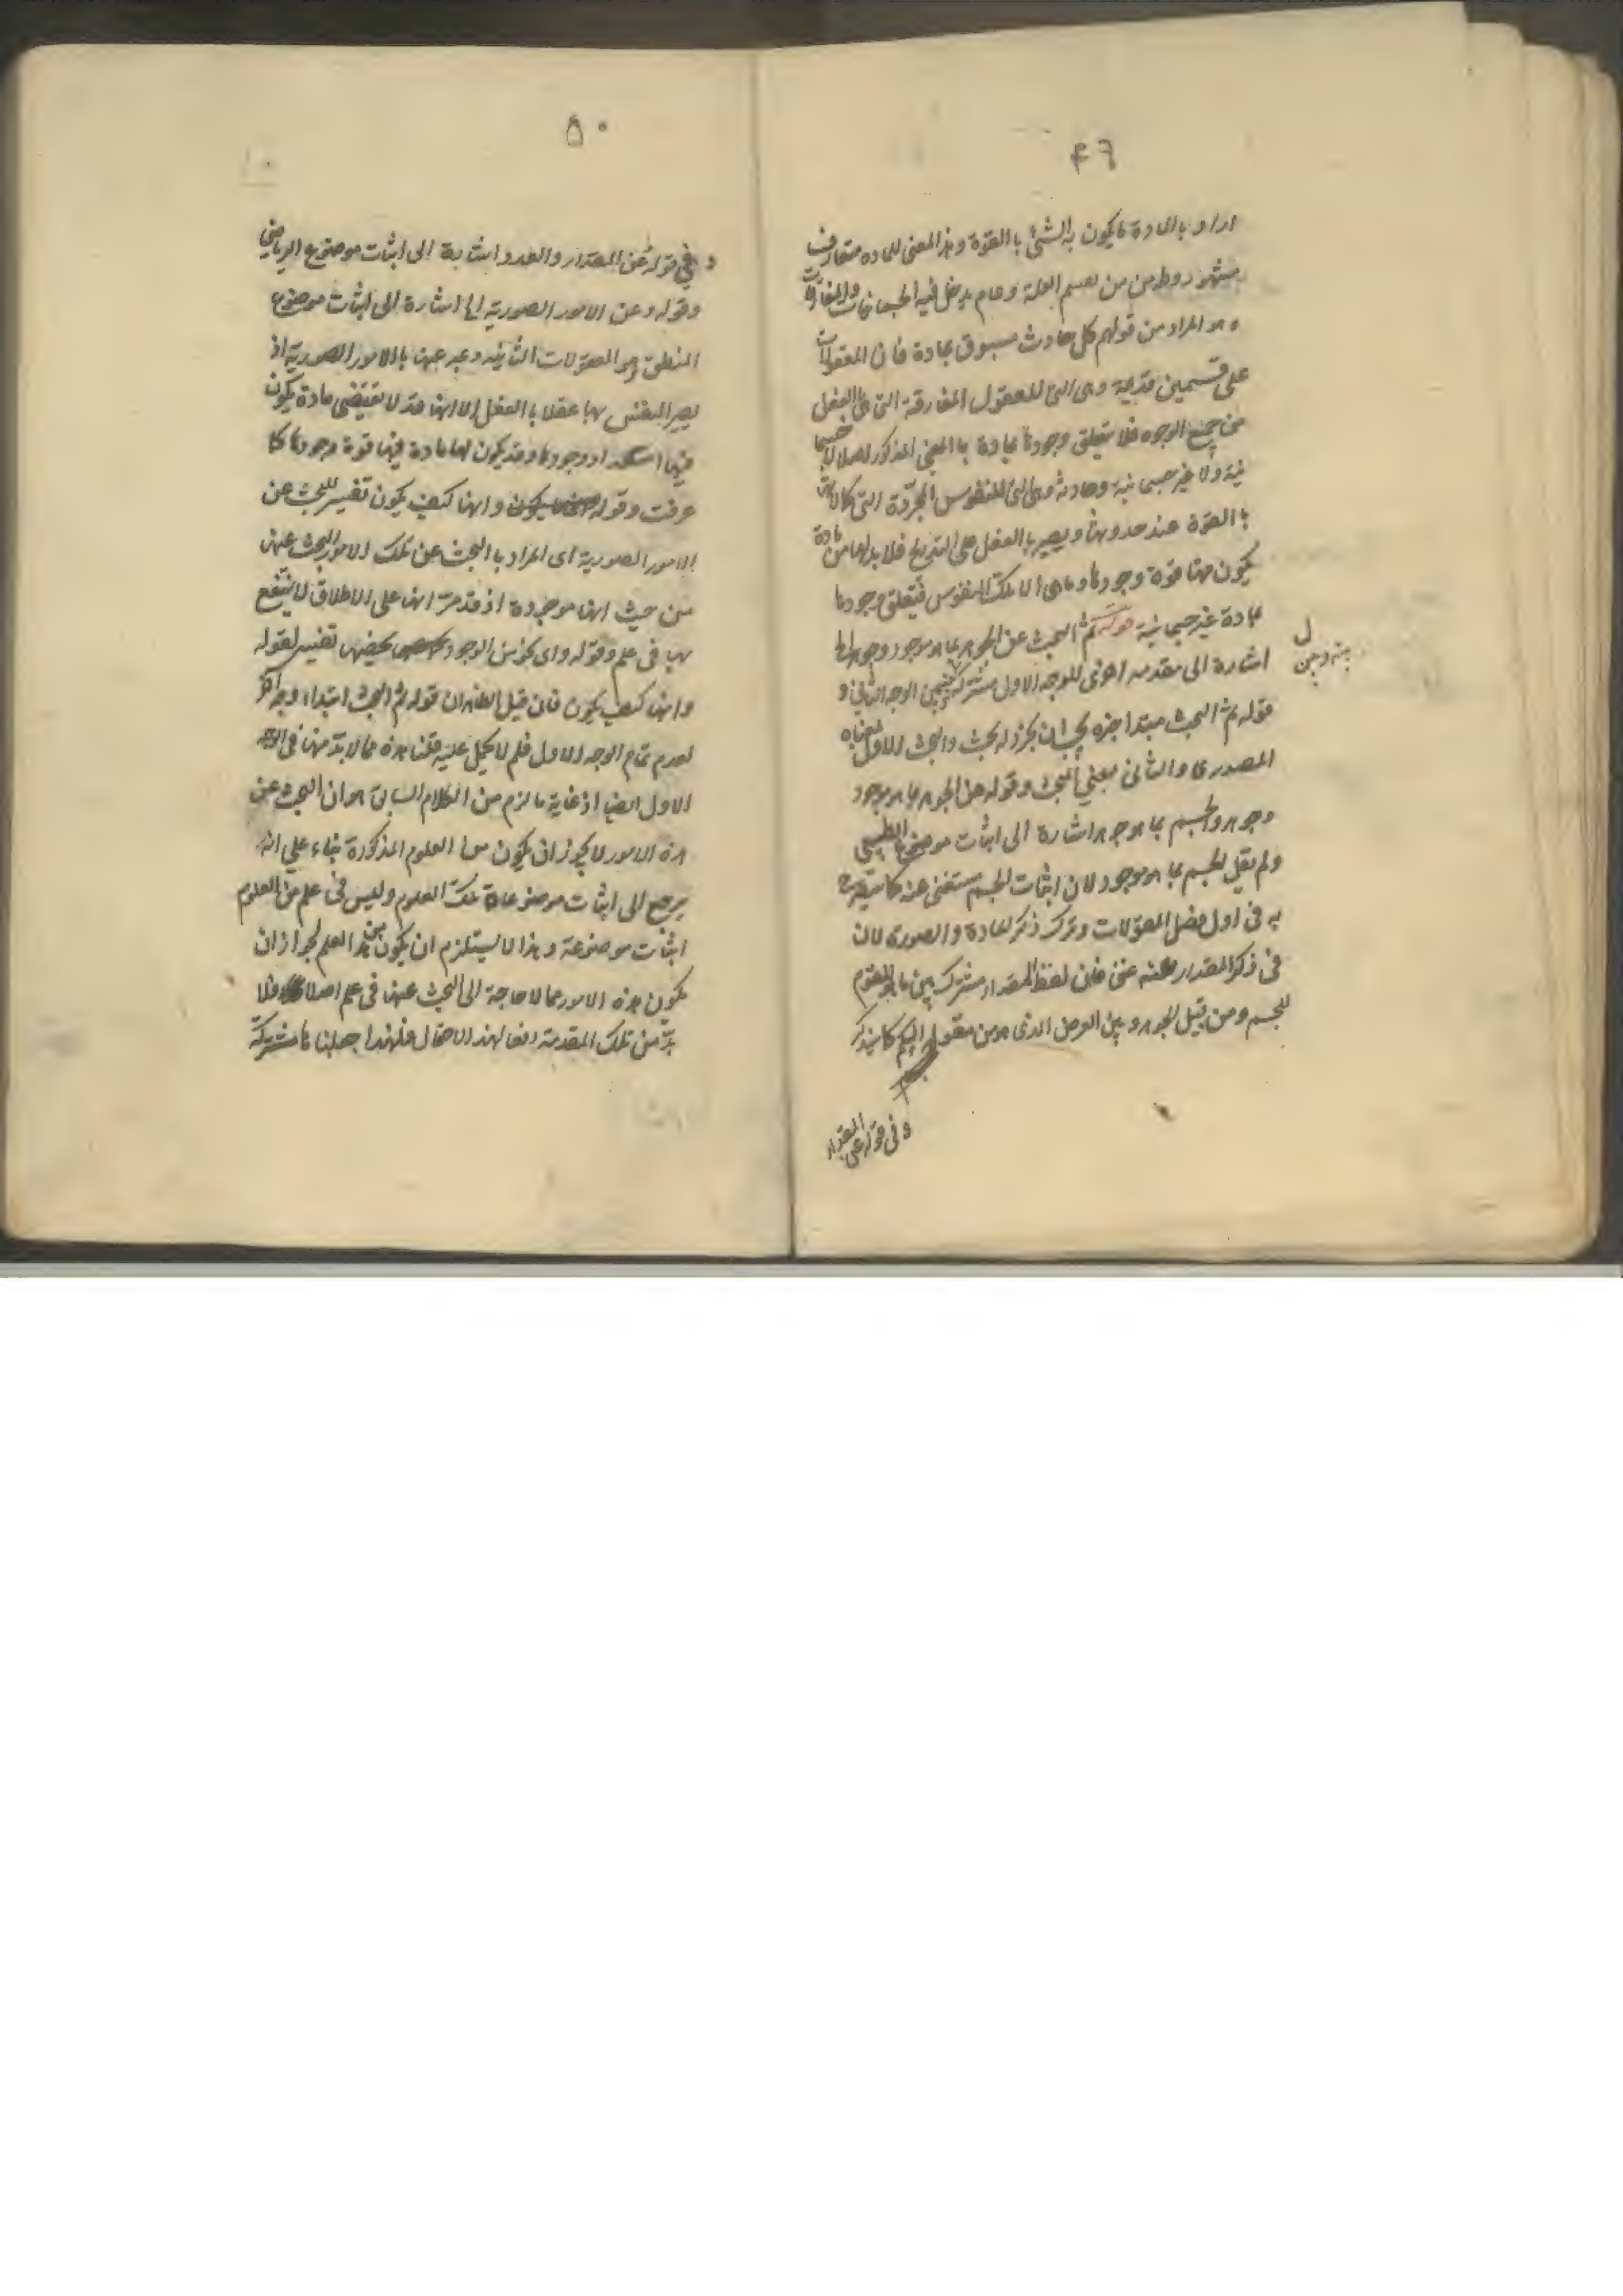 ۴۹
اراد بالمادة ما يكون به الشئ بالقوة وهذا المعنى للمادة متعارف
مشهور وظ من من تقسيم العلة وعام يدخل فيه الجسمانيات والمفارقات
وهو المراد من قولهم كل حادث مسبوق بمادة فان المعقولات
على قسمين قديمة وهى التى للعقول المفارقة التى هى بالفعل
من جميع الوجوه فلا يتعلق وجودها بمادة بالمعنى المذكور اصلا لا جسما
نية ولا غير جسمانية وحادثة وهى التى للنفوس المجردة التى كمالاتها
بالقوة عند حدوثها ويصير بالفعل على التدريج فلا بد لها من مادة
يكون فيها قوة وجودها وما هى الا تلك النفوس فيتعلق وجودها
بمادة غير جسمانية قوله ثم البحث عن الجوهر بما هو موجود وجوهر الخ
اشارة الى مقدمه اخرى للوجه الاول مشتركة بينه وبين الوجه الثانى و
ل
بينه وبين
قوله ثم البحث مبتدا خبره يجب ان يجرد له بحث والبحث الاول بمعناه
المصدرى والثانى بمعنى المبحث وقوله عن الجوهر بما هو موجود
وجوهر والجسم بما هو جوهر اشارة الى اثبات موضوع الطبيعى
ولم يقل الجسم بما هو موجود لان اثبات الجسم مستغنى عنه كما سيصرح
به فى اول فصل المقولات وترك ذكر المادة والصورى لان
فى ذكر المقدار عنه غنى فان لفظ المقدار مشترك بين ما هو المقوم
للجسم ومن قبيل الجوهر وبين العرض الذى هو من مقولة الكم كما سيذكر
وفى قوله عن المقدار
۵۰
وفى قوله عن المقدار والعدد اشارة الى اثبات موضوع الرياضى
وقوله وعن الامور الصورية الخ اشارة الى اثبات موضوع
المنطق وهو المعقولات الثانية وعبر عنها بالامور الصورية اذ
يصير النفس بها عقلا بالفعل الا انها قد لا تقتضى مادة يكون
فيها استعداد وجودها وقد يكون لها مادة فيها قوة وجودها كما
عرفت وقوله وانها كيف يكون تفسير للبحث عن
الامور الصورية اى المراد بالبحث عن تلك الامور البحث عنها
من حيث انها موجودة اذ قد مر انها على الاطلاق لا ينتفع
بها فى علم وقوله واى نحو من الوجود يخصها تفسير لقوله
وانها كيف يكون فان قيل الظاهر ان قوله ثم البحث ابتداء وجه آخر
لعدم تمام الوجه الاول فلم لا يحمل عليه قلنا هذه مما لا بد منها فى الوجه
الاول ايضا اذ غاية ما لزم من الكلام السابق هو ان البحث عن
هذه الامور لا يجوز ان يكون من العلوم المذكورة بناء على انه
يرجع الى اثبات موضوعات تلك العلوم وليس فى علم من العلوم
اثبات موضوعة وهذا لا يستلزم ان يكون من هذا العلم لجواز ان
يكون هذه الامور مما لا حاجة الى البحث عنها فى علم اصلا فلا
بد من تلك المقدمة دفعا لهذا الاحتمال فلهذا جعلناها مشتركة